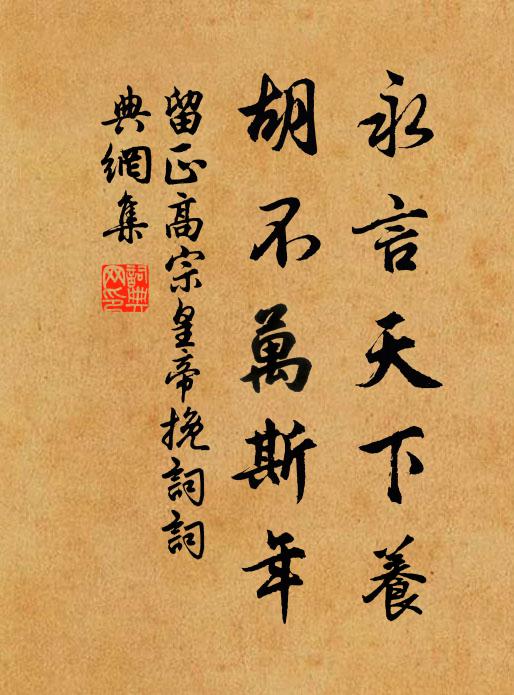 永言天下養
胡不萬斯年
留正高宗皇帝挽詞詞
典網集
詞典
网印